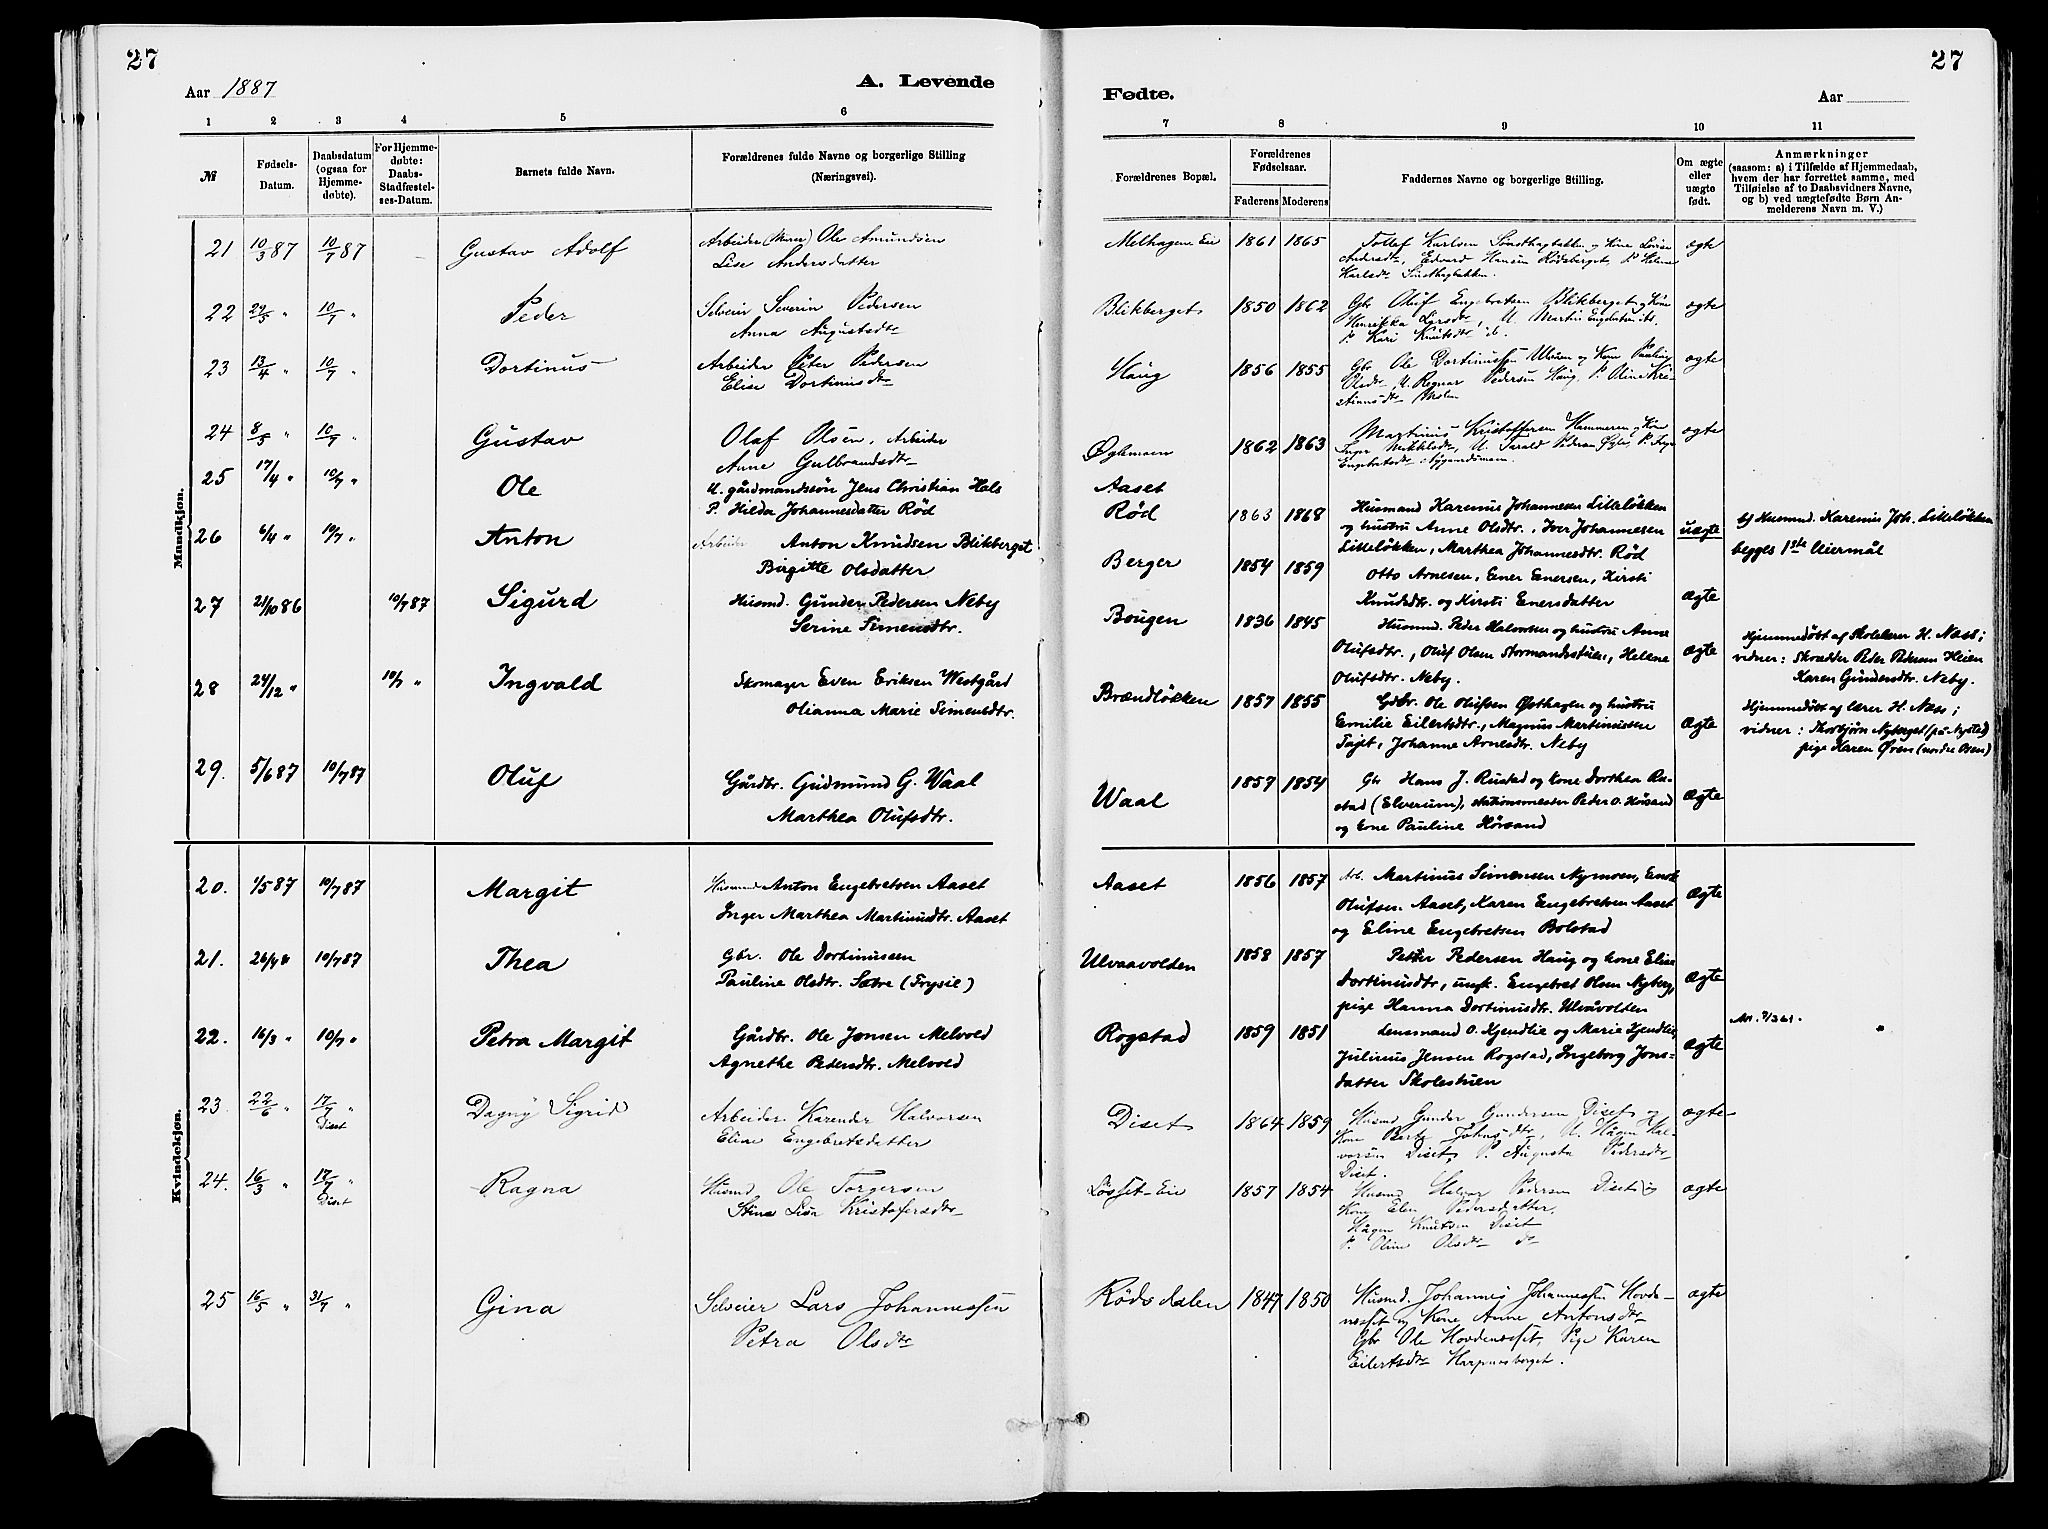 27
27
Aar 1887
A. Levende
Fødte.
Aar
1 2 3 4 5 6
7 8 9 10 11
№
Fødsels-
Datum.
Daabsdatum
(ogsaa for
Hjemme-
døbte).
For Hjemme-
døbte:
Daabs-
Stadfæstel-
ses-Datum.
Barnets fulde Navn.
Forældrenes fulde Navne og borgerlige Stilling
(Næringsvei).
Forældrenes Bopæl.
Forældrenes
Fødselsaar.
Faderens Moderens
Faddernes Navne og borgerlige Stilling.
Om ægte
eller
uægte
født.
Anmærkninger
(saasom: a) i Tilfælde af Hjemmedaab,
hvem der har forrettet samme, med
Tilføielse af to Daabsvidners Navne,
og b) ved uægtefødte Børn An-
melderens Navn m. V.)
Mandkjøn.
21 10/3 87 10/7 87 Gustav Adolf Arbeider (Murer) Ole Amundsen
Lise Andersdatter
Melhagen Eie 1861 1865 Tollef Karlsen Sandhagbakken og Kone Lovise
Andersdtr, Edvard Hansen Rødsberget, P. Helene
Karlsdtr Sandhagbakken.
ægte
22 29/5 " 10/7 " Peder Selveier Severin Pedersen
Anna Augustsdtr
Blikberget 1850 1862 Gbr Oluf Engebretsen Blikberget og Kone
Henrikka Larsdtr, U. Martin Engebretsen ibd.
P. Kari Knutsdtr ib.
ægte
23 13/4 " 10/7 " Dortinus Arbeider Peter Pedersen
Elise Dortinusdtr
Haug 1856 1855 Gbr Ole Dortinussen Ulvaaen og Kone Pauline
Olsdtr, U. Regnar Pedersen Haug, P. Oline Kri-
stiansdtr
ægte
24 8/5 " 10/7 " Gustav Olaf Olsen, Arbeider
Anne Gulbrandsdtr
Øglemoen 1862 1863 Martinus Kristoffersen Hammeren og Kone
Inger Mikkelsdtr, U. Tarald Pedersen Øgle, P. Inger
Engebretsdtr Nygaardsmoen.
ægte
25 17/4 " 10/7 " Ole U. gårdmandssøn Jens Christian Hals
P. Hilda Johannesdatter Rød
Aaset
Rød 1863 1868 Husmand Karenus Johannesen Lilleløkken
og hustru Anne Olsdtr., Iver Johannesen
Lilleløkken, Marthea Johannesdtr. Rød
uægte
ty Husmd. Karenus Joh. Lilleløkken
begges 1ste Leiermål
26 6/4 " 10/7 " Anton Arbeider Anton Knudsen Blikberget
Birgitte Olsdatter
Berger 1854 1859 Otto Arnesen, Ener Enersen, Kirsti
Knudsdtr. og Kirsti Enersdatter
ægte
27 21/10 86 10/7 87 Sigurd Husmd. Gunder Pedersen Neby
Serine Simensdtr.
Bougen 1836 1845 Husmd. Peder Halvorsen og hustru Anne
Olufsdtr., Oluf Olsen Stormandsstuen, Helene
Olufsdtr. Neby.
ægte
Hjemmedøbt af Skolelærer H. Næss;
vidner: Skrædder Peder Pedersen Heien
Karen Gundersdtr. Neby.
28 24/12 " 10/7 " Ingvald Skomager Even Eriksen Westgård
Olianna Marie Simensdtr.
Brændløkken 1857 1855 Gdbr. Ole Olufsen Østhagen og hustru
Emilie Eilertsdtr., Magnus Martinussen
Tajet, Johanne Arnesdtr. Neby
ægte
Hjemmedøbt af lærer H. Næss;
vidner: Thorbjørn Nyberget (på Nysted)
pige Karen Øren (nordre Osen)
29. 5/6 87 10/7 87 Oluf Gårdbr. Gudmund G. Waal
Marthea Olufsdtr.
Waal 1857 1854 Gbr Hans J. Rustad og kone Dorthea Ru-
stad (Elverum), stationsmester Peder O. Hørsand
og kone Pauline Hørsand
ægte
Kvindekjøn.
20. 1/5 87 10/7 87 Margit Husmd Anton Engebretsen Aaset
Inger Marthea Martinusdtr. Aaset
Aaset 1856 1857 Arb. Martinus Simensen Nymoen, Enok
Olufsen Aaset, Karen Engebretsen Aaset
og Eline Engebretsen Bolstad
ægte
21. 10/7 87 Thea Gbr. Ole Dortinussen
Pauline Olsdtr. Sætre (Trysil)
Ulvaavolden 1858 1857 Petter Pedersen Haug og kone Elise
Dortinusdtr, ungk. Engebret Olsen Nyberg,
pige Hanna Dortinusdtr. Ulvåvolden
ægte
22. 16/3 " 10/7 " Petra Margit Gårdbr. Ole Jonsen Melvold
Agnethe Pedersdtr. Melvold
Rogstad 1859 1851 Lensmand O. Kjendlie og Marie Kjendlie,
Julinus Jensen Rogstad, Ingeborg Jons-
datter Skolestuen
ægte
23. 22/6 " 17/7 " Diset Dagny Sigrid Arbeider Karender Halvorsen
Eline Engebretsdatter
Diset 1864 1859 Husmd Gunder Gundersen Diset og
Kone Berte Johnsdtr, U. Hågen Hal-
vorsen Diset, P. Augusta Pedersdtr
Diset.
ægte
24. 16/3 " 17/7 " Diset Ragna Husmd Ole Torgersen
Stine Lise Kristofersdtr
Løsset-Eie 1857 1854 Husmd Halvor Pedersen Diset og
Kone Elen Pedersdatter,
Hågen Knutsen Diset
P. Oline Olsdtr do
ægte
25 16/5 " 31/7 " Gina Selveier Lars Johannessen
Petra Olsdtr
Rødsdalen 1847 1850 Husmd. Johannes Johannessen Hovde-
nsset og Kone Anne Antonsdtr
Gbr Ole Hovdensset, Pige Karen
Eilertsdtr Harpnesberget.
ægte